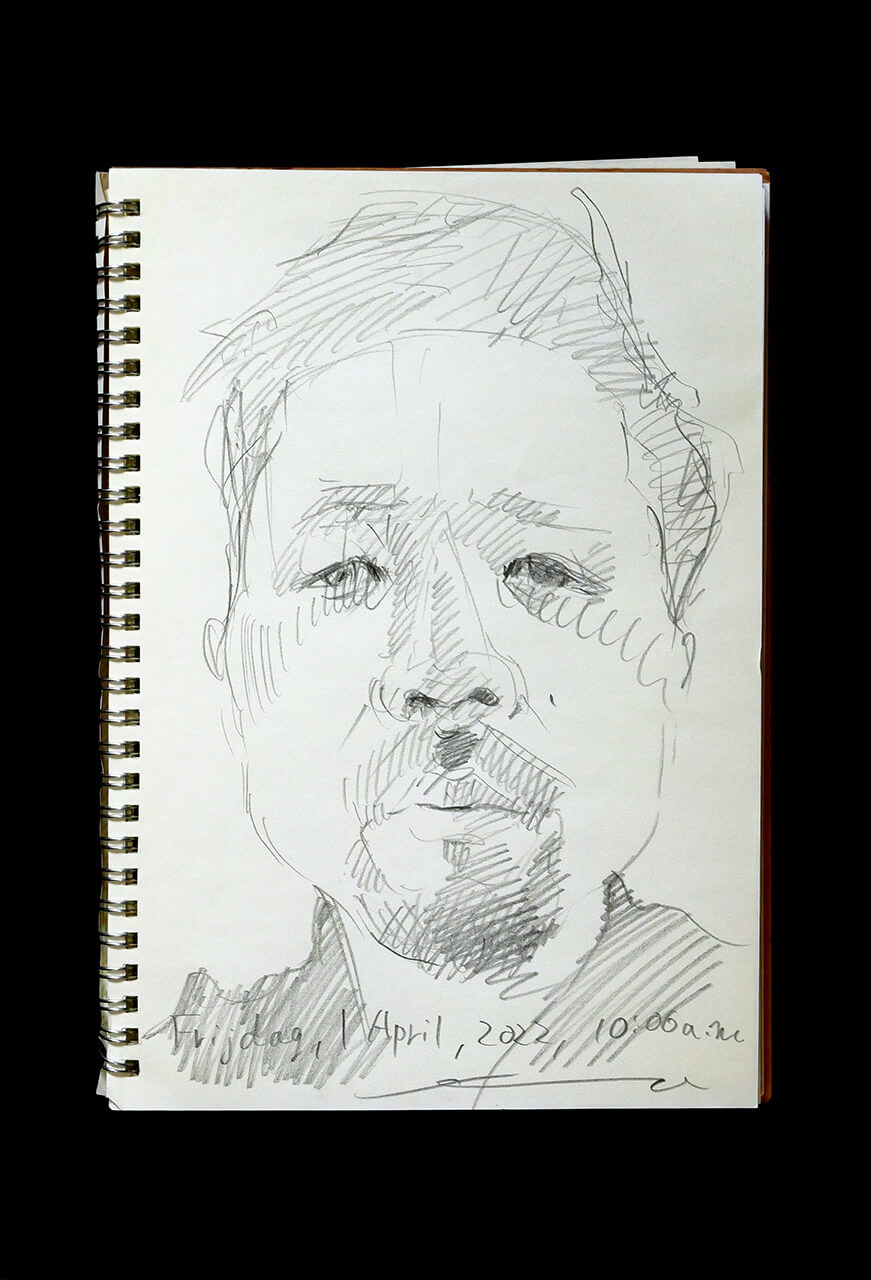 Frijdag, 1 April, 2022, 10:06 a.m